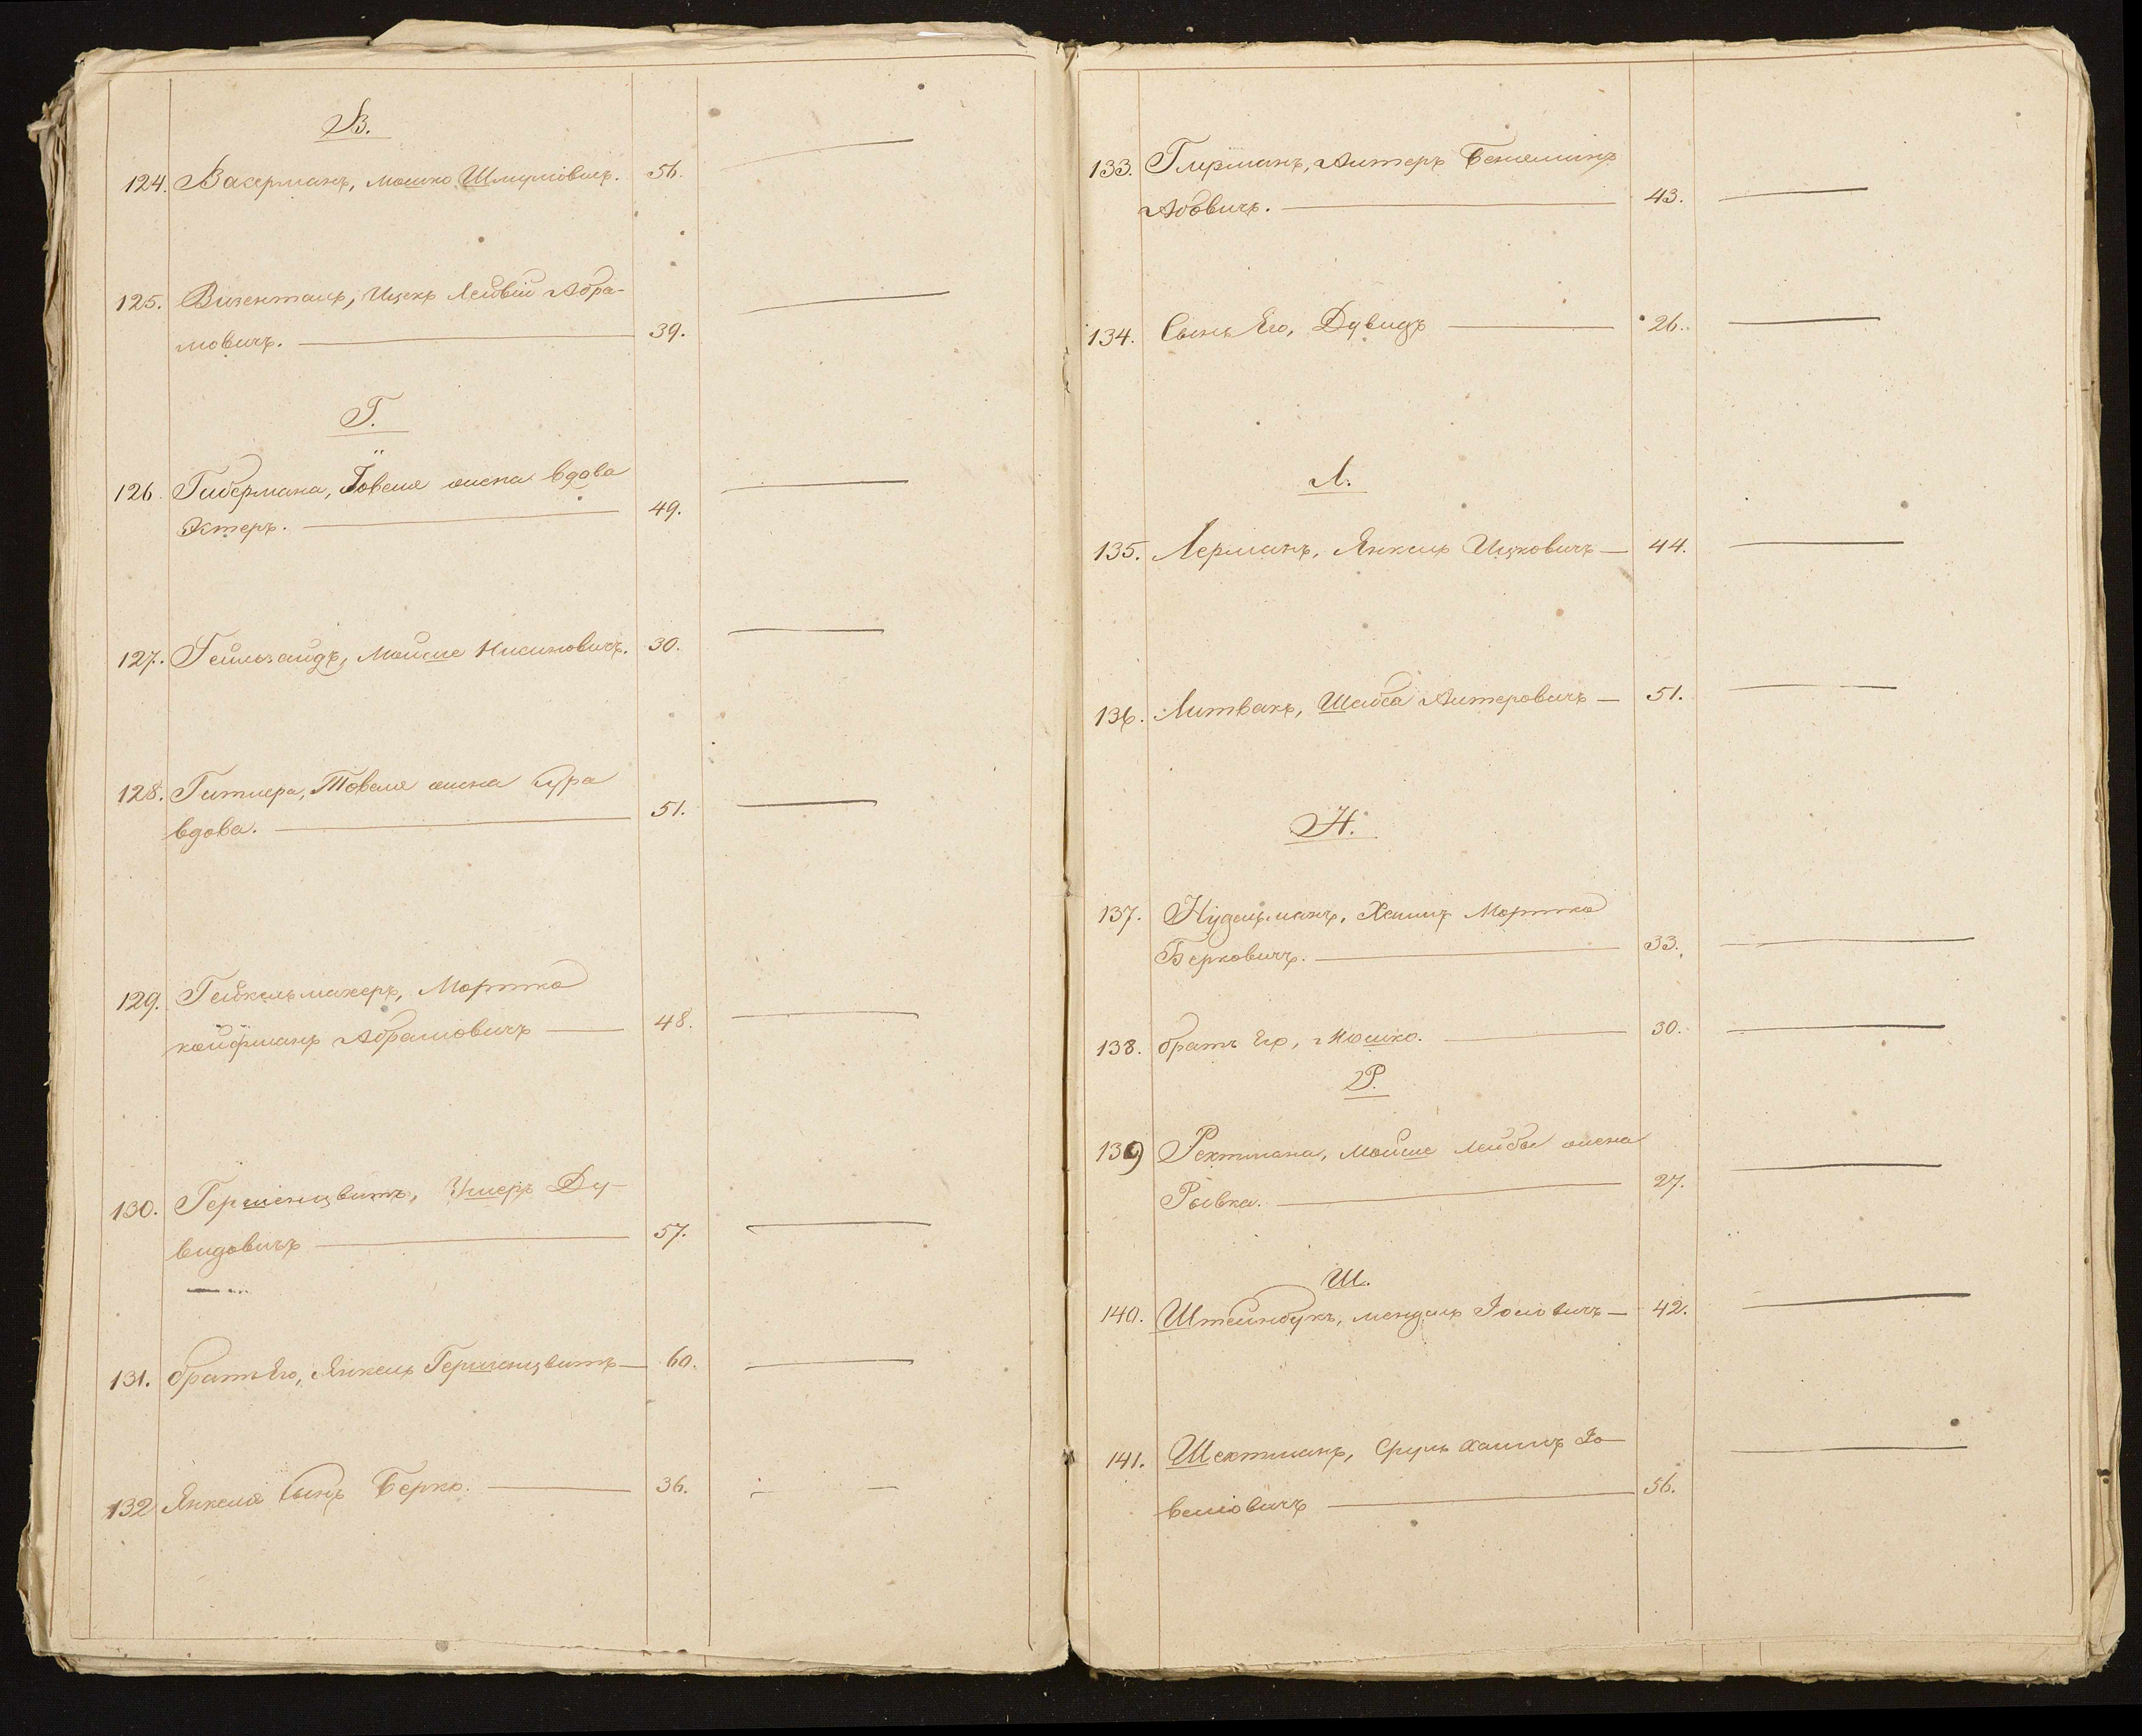 В.
124. Васерманъ, Мошко Шмулiовичъ. 56.
125. Визенталь, Ицекъ Лейвiй Абра-
мовичъ. 39.
Г.
126. Гибермана, Iовеля жена вдова
Эстеръ. 49.
127. Гейльзайдъ, Мойше Нисиновичъ. 30.
128. Гитлера, Товеля жена Сура
вдова. 51.
129. Гейкельмахеръ, Мортко
койфманъ Абрамовичъ 48.
130. Гершенцвитъ, Ушеръ Ду-
видовичъ 57.
131. братъ Его, Янкель Гершенцвитъ 60.
132 Янкеля Сынъ Берко. 36.
133. Глерманъ, Алтеръ Бенеминъ
Абовичъ. 43.
134. Сынъ Его, Дувидъ 26.
Л.
135. Лерманъ, Янкель Ицковичъ 44.
136. Литвакъ, Шабса Алтеровичъ 51.
Н.
137. Нудельманъ, Хаимъ Мортко
Берковичъ. 33.
138. братъ Его, Мошко. 30.
Р.
139 Рехтмана, Мойше Лейбы жена
Рывка. 27.
Ш.
140. Штейнбукъ, Мендель Iоiовичъ 42.
141. Шехтманъ, Сруль Хаимъ Iо-
велiовичъ 56.